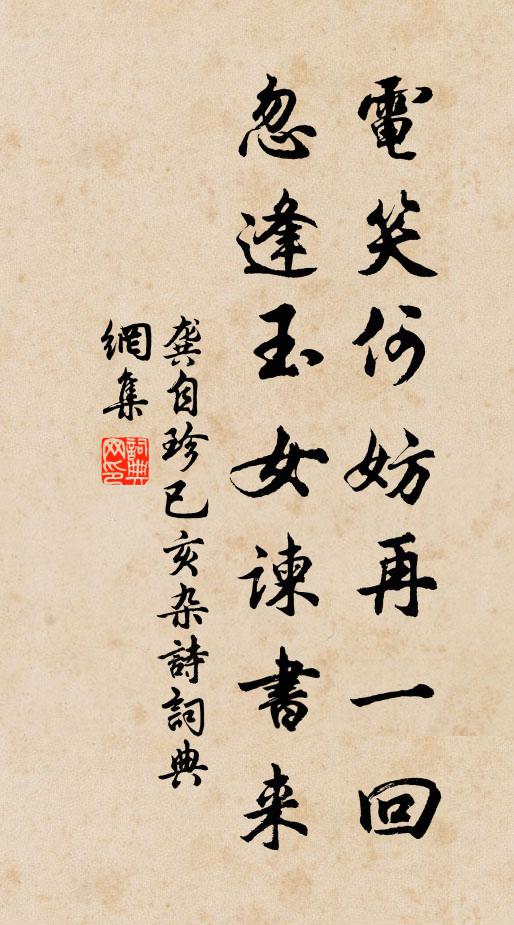 電笑何妨再一回
忽逢玉女諫書来
龔自珍己亥杂詩詞典
網集
詞典网印